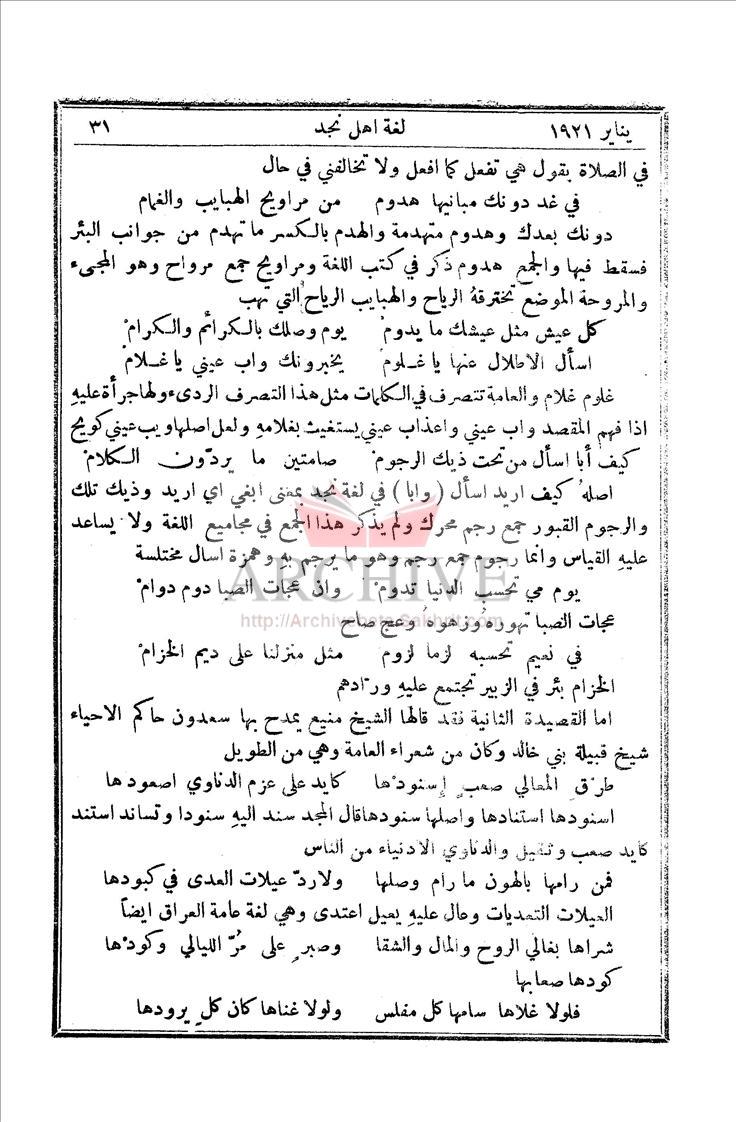 يناير ١٩٢١ لغة اهل نجد ٣١
في الصلاة بقول هي تفعل كما افعل ولا تخالفني في حال
في غد دونك مبانيها هدوم من مراويح الهبايب والغمام
دونك بعدك وهدوم متهدمة والهدم بالكسر ما تهدم من جوانب البئر
فسقط فيها والجمع هدوم ذكر في كتب اللغة ومراويح جمع مرواح وهو المجيء
والمروحة الموضع تخترقهُ الرياح والهبايب الرياح التي تهب
كل عيش مثل عيشك ما يدومْ يوم وصلك بالكرائم والكرامْ
اسأل الاطلال عنها يا غلومْ يخبرونك واب عيني يا غلامْ
غلوم غلام والعامة تتصرف في الكلمات مثل هذا التصرف الردىء ولها جرأة عليهِ
اذا فهم المقصد واب عيني واعذاب عيني يستغيث بغلامهِ ولعل اصلها ويب عيني كويح
كيف أبا اسأل من تحت ذيك الرجومْ صامتين ما يردّون الكلامْ
اصلهُ كيف اريد اسأل ( وابا ) في لغة نجد بمعنى ابغي اي اريد وذيك تلك
والرجوم القبور جمع رجم محرك ولم يذكر هذا الجمع في مجاميع اللغة ولا يساعد
عليهِ القياس وانما رجوم جمع رجم وهو ما يرجم بهِ وهمزة اسال مختلسة
يوم مي تحسب الدنيا تدومْ وان عجات الصبا دوم دوامْ
عجات الصبا تهوره وزهوهُ وعج صاح
في نعيم تحسبه لزما لزوم مثل منزلنا على ديم الخزامْ
الخزام بئر في الزبير تجتمع عليهِ ورّادهم
اما القصيدة الثانية فقد قالها الشيخ منيع يمدح بها سعدون حاكم الاحياء
شيخ قبيلة بني خالد وكان من شعراء العامة وهي من الطويل
طرْق المعالي صعبٍ إسنودْها كايد على عزم الدناوي اصعودها
اسنودها استنادها واصلها سنودها قال المجد سند اليهِ سنودا وتساند استند
كايد صعب وثقيل والدناوي الادنياء من الناس
فمن رامها بالهون ما رام وصلها ولا ردّ عيلات العدى في كبودها
العيلات التعديات وعال عليهِ يعيل اعتدى وهي لغة عامة العراق ايضاً
شراها بغالي الروح والمال والشقا وصبرٍ على مُرّ الليالي وكودْها
كودها صعابها
فلولا غلاها سامها كل مفلس ولولا غناها كان كلٍ يرودها
ARCHIVE
http://Archivebeta.Sakhrit.com